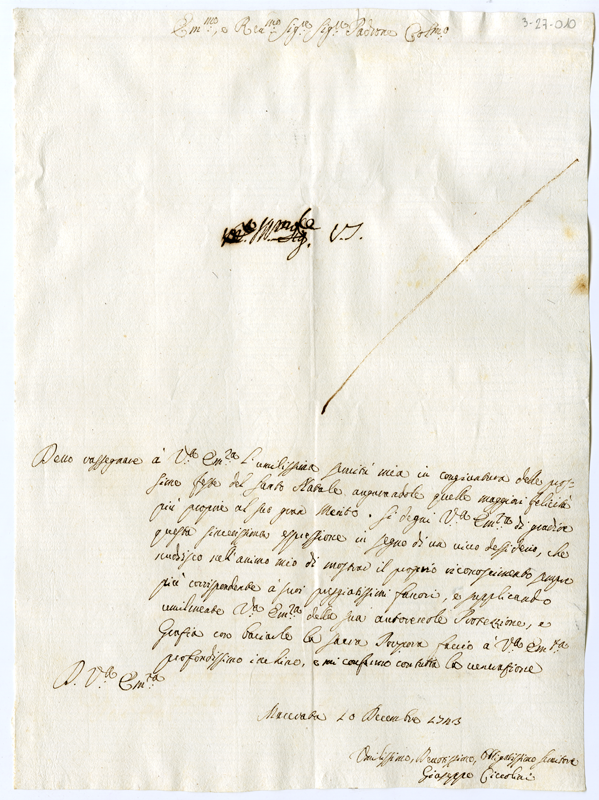 3-27-010
Em.mo, e Rev.mo Sig.re Sig.re Padrone Col.mo
V. S.
Devo rassegnare à V.ra Em.za l'umilissima servitù mia in congiuntura delle pros-
sime feste del Santo Natale, augurandole quelle maggiori felicità
più proprie al suo gran Merito. Si degni V.ra Em.za di gradire
questa sincerissima espressione in segno di un vivo desiderio, che
nudrisco nell'animo mio di mostrar il proprio riconoscimento sempre
più corrispondente à suoi pregiatissimi favori, e supplicando
umilmente V.ra Em.za della sua autorevole Protezzione, e
Grazia con baciarle la sacra Porpora faccio à V.ra Em.za
profondissimo inchino, e mi confermo con tutta la venerazione
D. V.ra Em.za
Macerata 20 Decembre 1743
Umilissimo, Devotissimo, Obligatissimo Servitore
Giuseppe Ciccolini